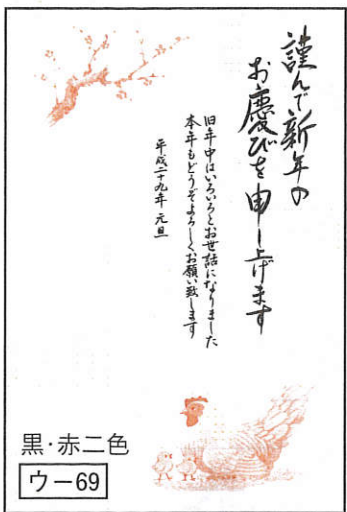 謹んで新年の
お慶びを申し上げます
旧年中はいろいろとお世話になりました
本年もどうぞよろしくお願い致します
平成二十九年 元旦
黒・赤二色
ウー69